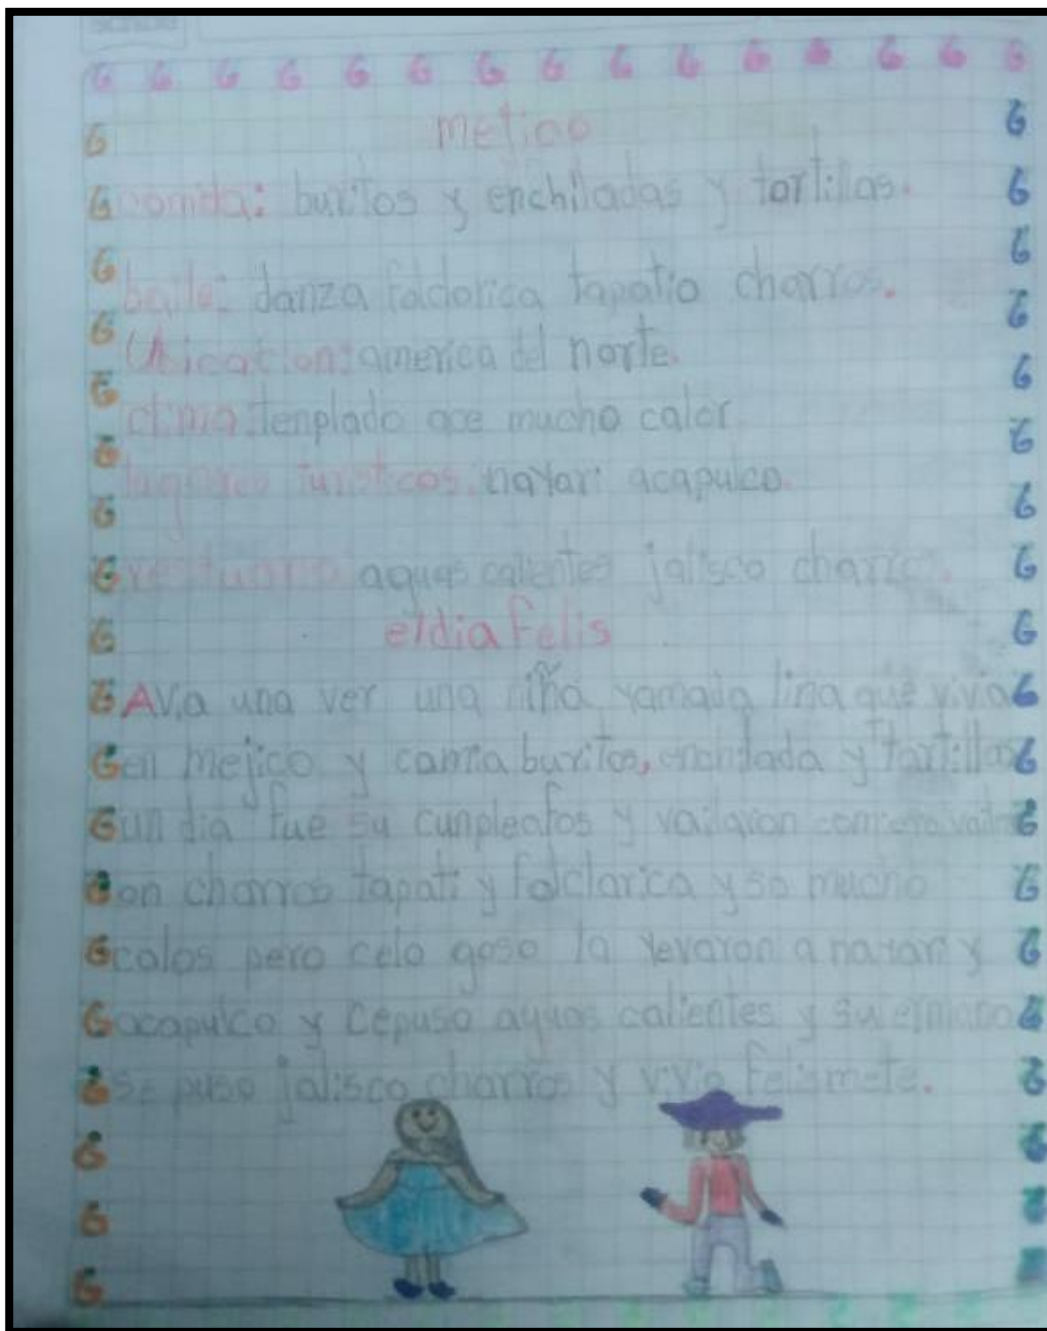 G G G G G G G G G G G G G G G
metico
comida: buritos y enchiladas y tortillas.
baile: danza folclorica tapatio charros.
Ubicacion: america del norte.
clima: templado ace mucho calor
lugares turisticos: nayari acapulco.
vestuario aguas calientes jalisco charros.
el dia felis
Avia una ver una niña yamada lina que vivia
en mejico y comia buritos, enchilada y tortillas
un dia fue su cunpleaños y vailaron
con charros tapati y folclarica y so mucho
calos pero celo goso la yevaron a nayari y
acapulco y cepuso aguas calientes y su ermano
se puso jalisco charros y vivio felismete.